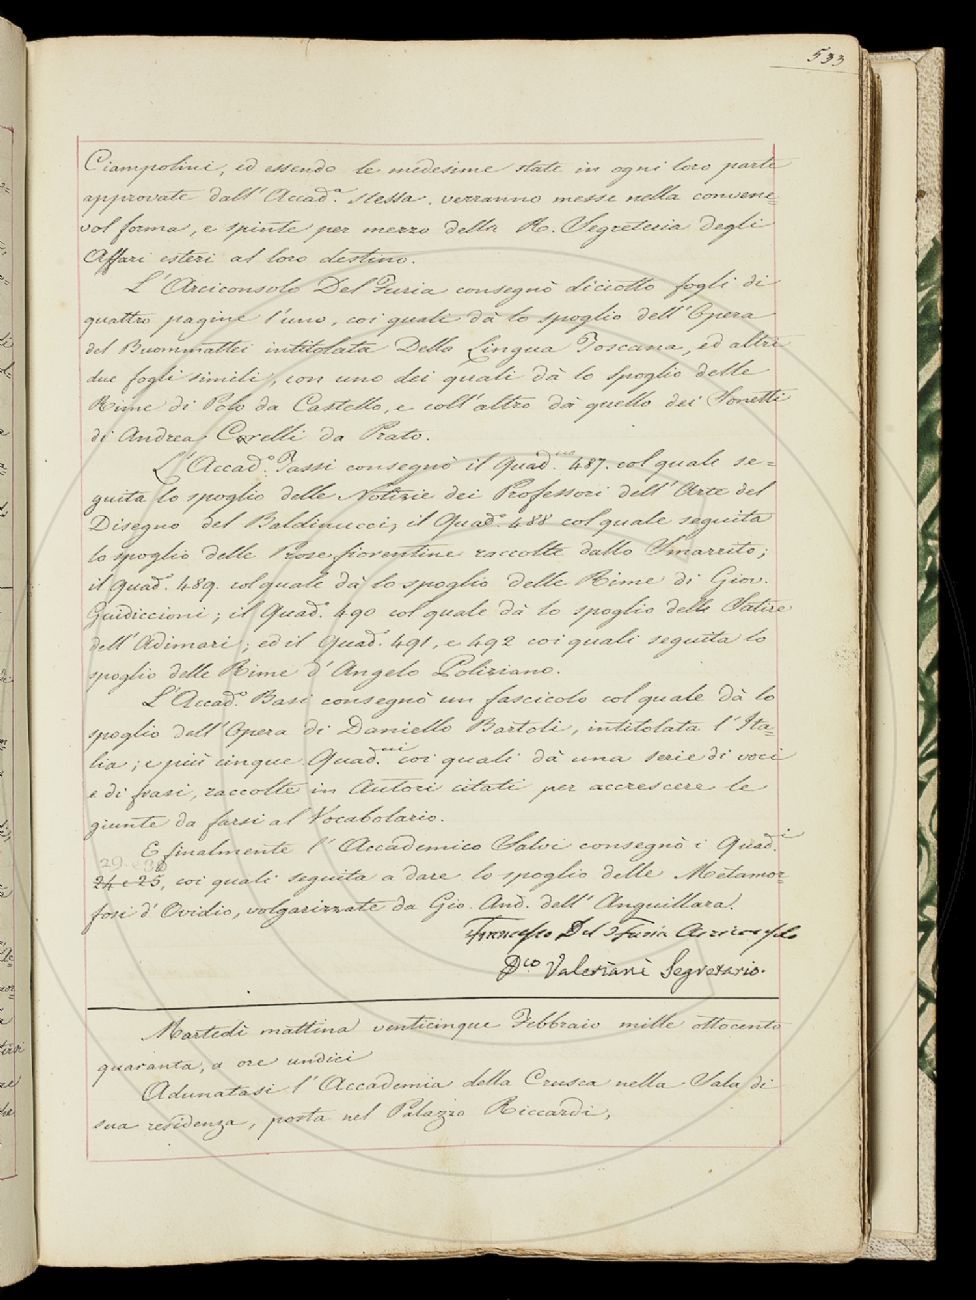 533
Ciampolini, ed essendo le medesime state in ogni loro parte
approvate dall'Accad.ª stessa, verranno messe nella convene=
vol forma, e spinte per mezzo della R. Segreteria degli
Affari esteri al loro destino.
L'Arciconsolo Del Furia consegnò diciotto fogli di
quattro pagine l'uno, coi quali dà lo spoglio dell'Opera
del Buommattei intitolata Della Lingua Toscana, ed altri
due fogli simili, con uno dei quali dà lo spoglio delle
Rime di Polo da Castello, e coll'altro dà quello dei Sonetti
di Andrea Corelli da Prato.
L'Accad.º Tassi consegnò il Quad.no 487. col quale se=
guita lo spoglio delle Notizie dei Professori dell'Arte del
Disegno del Baldinucci; il Quad.º 488 col quale seguita
lo spoglio delle Prose fiorentine raccolte dallo Smarrito;
il Quad.º 489. col quale dà lo spoglio delle Rime di Giov.
Guidiccioni; il Quad.º 490 col quale dà lo spoglio delle Satire
dell'Adimari; ed il Quad.º 491, e 492 coi quali seguita lo
spoglio delle Rime d'Angelo Poliziano.
L'Accad.º Basi consegnò un fascicolo col quale dà lo
spoglio dell'Opera di Daniello Bartoli, intitolata l'Ita=
lia; e più cinque Quad.ni coi quali dà una serie di voci
e di frasi, raccolte in Autori citati per accrescere le
giunte da farsi al Vocabolario.
E finalmente l'Accademico Salvi consegnò i Quad.i
29. e 30
24 e 25, coi quali seguita a dare lo spoglio delle Metamor=
fosi d'Ovidio, volgarizzate da Gio. And. dell'Anguillara.
Francesco Del Furia Arciconsolo
D.co Valeriani Segretario.
Martedì mattina venticinque Febbraio mille ottocento
quaranta, a ore undici
Adunatasi l'Accademia della Crusca nella Sala di
sua residenza, posta nel Palazzo Riccardi,